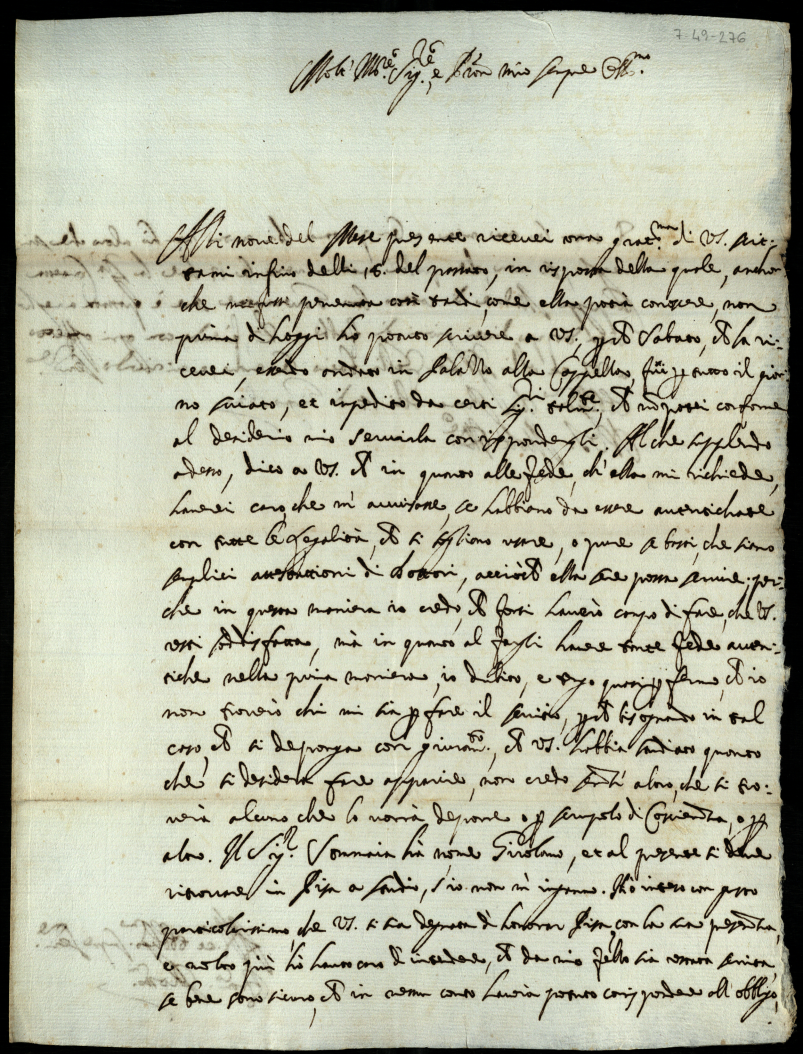 7-49-276
Molt' Ill.re Sig.re, e Pron mio sempre Oss.mo
Alli nove del Mese presente ricevei una grat.ma di VS. scit-
tami infino delli 15. del passato, in risposta della quale, anchor
che mi fussi pervenuta così tardi, come ella potrà conoscere, non
prima di hoggi hò potuto scrivere a VS. p.chè Sabato, ch la ri-
cevei, essendo andato in Palazzo alla Cappella, fui p tutto il gior-
no sviato, et impedito da certi Sig.ri, ch nò potei conforme
al desiderio mio servirla con rispondergli. Al che supplendo
adesso, dico a VS. ch in quanto alle fede, ch'ella mi richiede,
haverei caro, che m'avvisasse, se habbiano da essere autentichate
con tutte le legalità, ch si sogliono usare, o pure se basti, che siano
semplici attestationi di Dottori, acciòch ella se ne possa servire; per-
che in questa maniera io credo, ch forsi haverò campo di fare, che VS.
resti soddisfatta, mà in quanto al fargli havere tante fede auten-
tiche nella prima maniera, io dubito, e tengo quasi p fermo, ch io
non troverò chi mi sia p fare il servitio, p.chè bisognando in tal
caso, ch si deponga con giuram.to, ch VS. habbia studiato quanto
che si desidera fare apparire, non credo che si tro-
verà alcuno che lo vorrà deporre o p scrupolo di Coscienza, o p
altro. Il Sig.r Sommaia hà nome Girolamo, et al presente si deve
ritrovare in Pisa a studio, s'io non m'inganno. Hò inteso con gusto
particolarissimo, che VS. si sia degnata di honorar Pisa con la sua presenza,
e molto più hò havuto caro d'intendere, ch da mio fratello sia restata servita,
se bene sono sicuro, ch in nessun conto haverà potuto corrispondere all'obbligo,